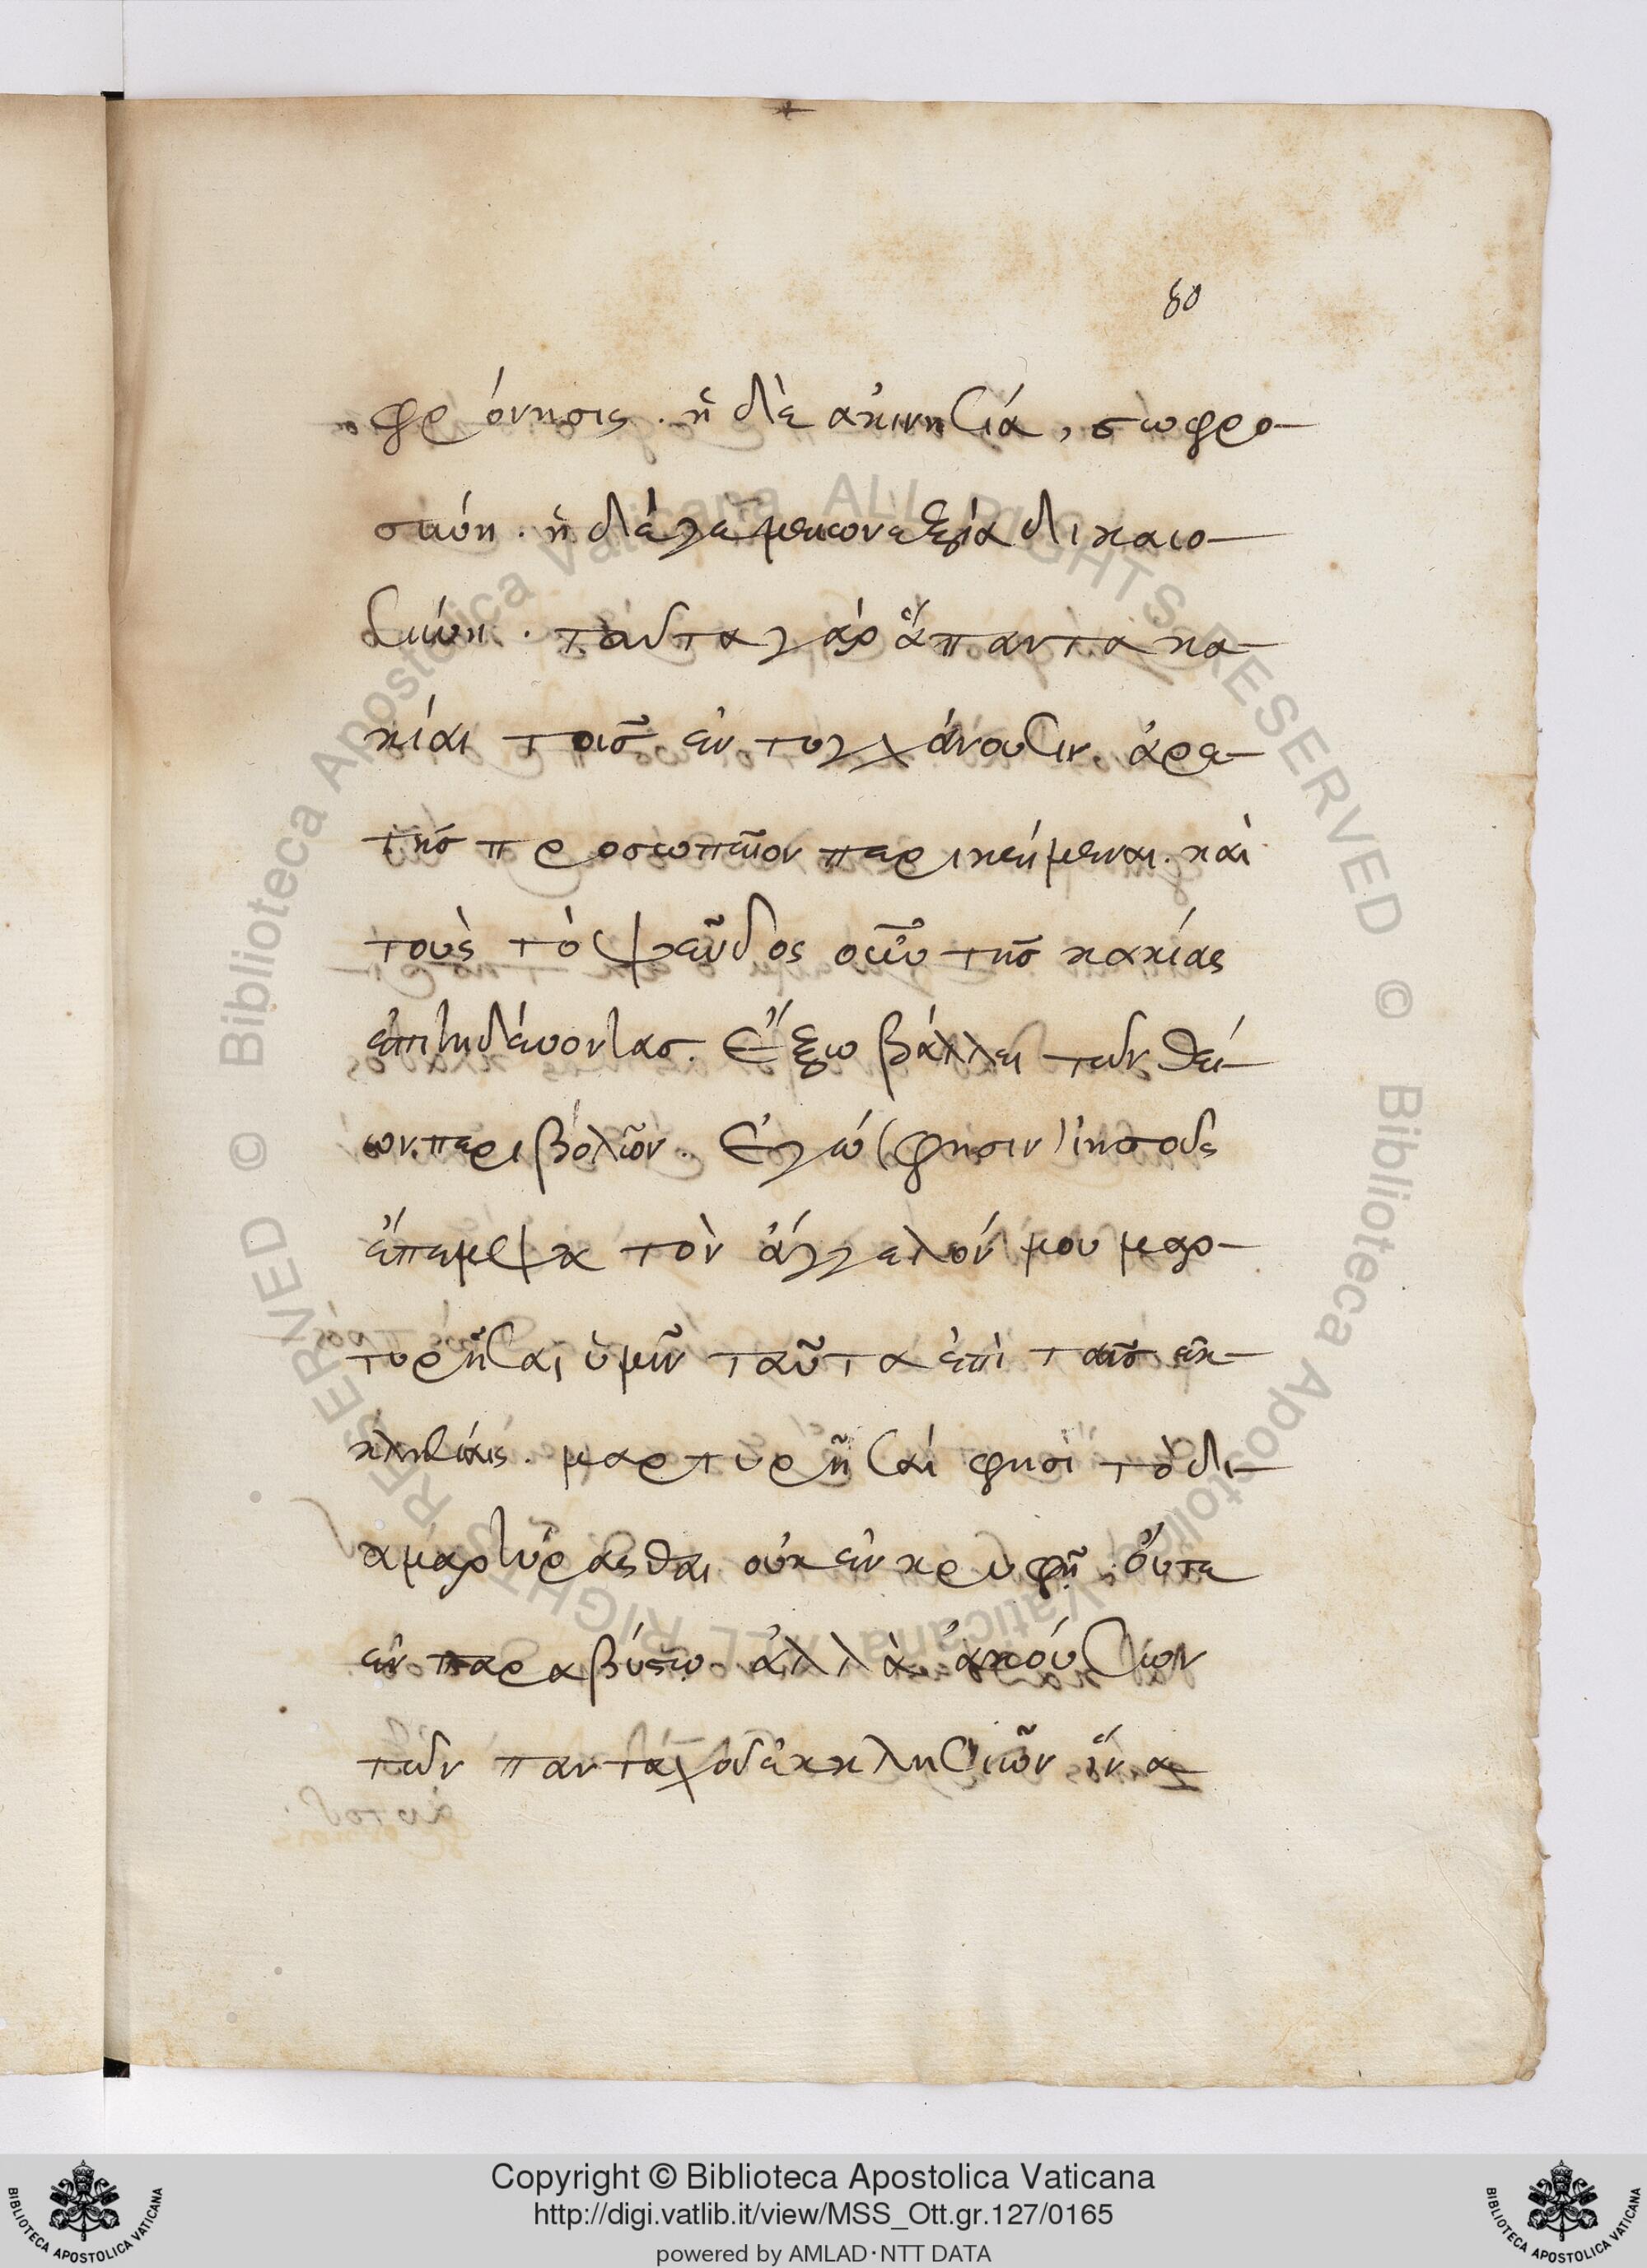 80
φρόνησις. ἡ δὲ ἀκινησία, σωφρο-
σύνη. ἡ δέ γε μειονεξία δικαιο-
σύνη. ταῦτα γὰρ ἅπαντα κα-
κίαι τοῖς ἐντυγχάνουσιν. ἀρε-
τῆς προσωπεῖον περικείμεναι. καὶ
τοὺς τὸ ψεῦδος οὖν τῆς κακίας
ἐπιτηδεύοντας. ἔξω βάλλει τῶν θεί-
ων περιβόλων. Ἐγώ (φησιν) ἰησοῦς
ἔπεμψα τὸν ἄγγελόν μου μαρ-
τυρῆσαι ὑμῖν ταῦτα ἐπὶ ταῖς ἐκ-
κλησίαις. μαρτυρῆσαί φησι τὸ δι-
αμαρτύρασθαι οὐκ ἐν κρυφῇ. οὔτε
ἐν παραβύστω ἀλλὰ ἀκούσιων
τῶν πανταχοῦ ἐκκλησιῶν ἵνα
Copyright © Biblioteca Apostolica Vaticana
http://digi.vatlib.it/view/MSS_Ott.gr.127/0165
powered by AMLAD·NTT DATA
BIBLIOTECA APOSTOLICA VATICANA
BIBLIOTECA APOSTOLICA VATICANA
© Biblioteca Apostolica Vaticana ALL RIGHTS RESERVED
© Biblioteca Apostolica Vaticana ALL RIGHTS RESERVED